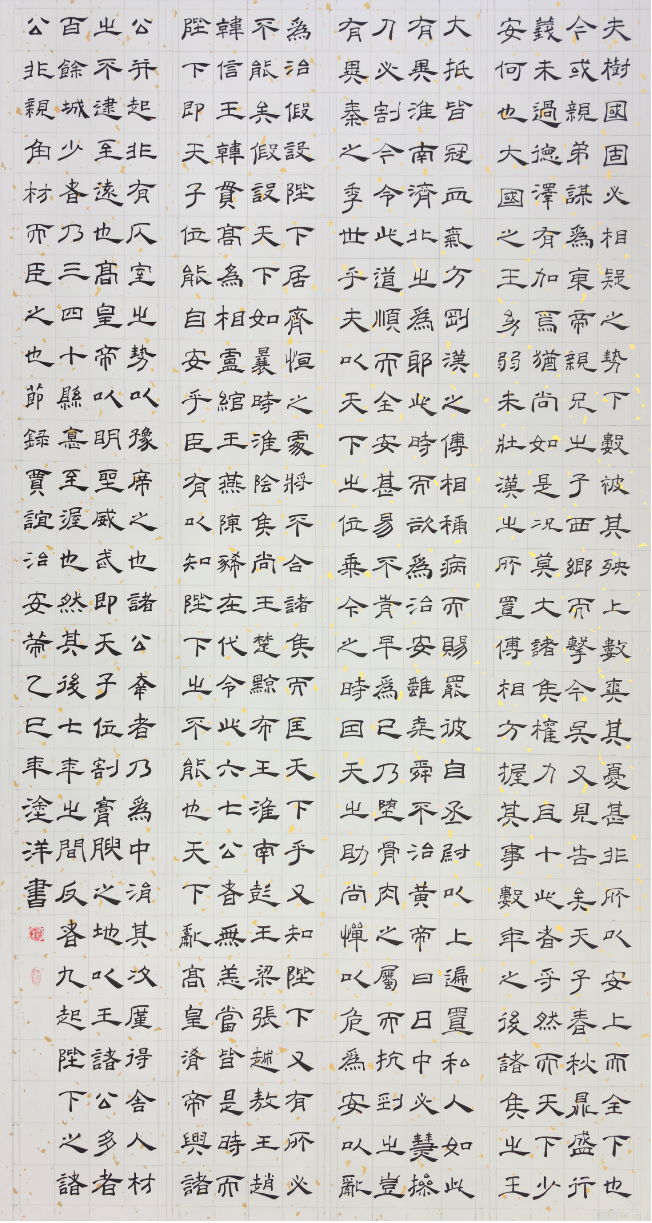 夫樹國固必相疑之勢下數被其殃上數爽其憂甚非所以安上而全下也
今或親弟謀為東帝親兄之子西鄉而擊今吳又見告矣天子春秋鼎盛行
義未過德澤有加焉猶尚如是況莫大諸侯權力且十此者乎然而天下少
安何也大國之王幼弱未壯漢之所置傅相方握其事數年之後諸侯之王
大抵皆冠血氣方剛漢之傅相稱病而賜罷彼自丞尉以上遍置私人如此
有異淮南濟北之為邪此時而欲為治安雖堯舜不治黃帝曰日中必熭操
刀必割今令此道順而全安甚易不肯早為已乃墮骨肉之屬而抗剄之豈
有異秦之季世乎夫以天下之位乘今之時因天之助尚憚以危為安以亂
為治假設陛下居齊桓之處將不合諸侯而匡天下乎又知陛下又有所必
不能矣假設天下如曩時淮陰侯尚王楚黥布王淮南彭王梁張越敖王趙
韓信王韓貫高為相盧綰王燕陳豨在代令此六七公者無恙當皆是時而
陛下即天子位能自安乎臣有以知陛下之不能也天下亂高皇濟帝與諸
公并起非有仄室之勢以豫席之也諸公幸者乃為中涓其次廑得舍人材
之不逮至遠也高皇帝以明聖威武即天子位割膏腴之地以王諸公多者
百餘城少者乃三四十縣惪至渥也然其後七年之間反者九起陛下之諸
公非親角材而臣之也節錄賈誼治安策乙巳年塗洋書